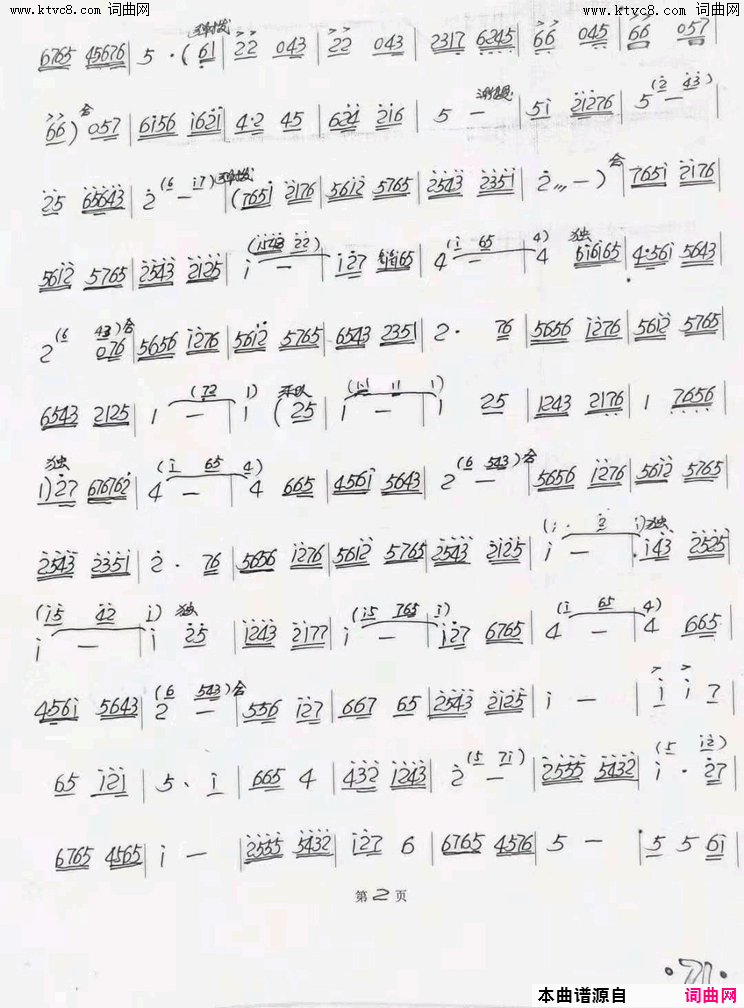 www.ktvc8.com 词曲网 www.ktvc8.com 词曲网
6765 45676 | 5 · ( 61 | 22 043 | 22 043 | 2317 6245 | 66 045 | 66 057
66 ) 合 057 | 6156 1621 | 4·2 45 | 624 216 | 5 — | 51 21276 | 5 (2 — 43)
25 65643 | 2 (6 — 17) (7651 2176 | 5612 5765 | 2543 2351 | 2 — ) 合 | 7651 2176
5612 5765 | 2543 2125 | 1 (1543 — 22) | 127 65 | 4 (1 — 65 | 4) 4 独 616165 | 4·561 5643
2 (6 43) 合 076 | 5656 1276 | 5612 5765 | 6543 2351 | 2 · 76 | 5656 1276 | 5612 5765
6543 2125 | 1 (72 — | 1) 1 ( 25 | 1 (11 — 11 | 1) 1 25 | 1243 2176 | 1 7656
独 1) 27 676762 | 4 (1 — 65 | 4) 4 665 | 4561 5643 | 2 (6 — 543) 合 | 5656 1276 | 5612 5765
2543 2351 | 2 · 76 | 5656 1276 | 5612 5765 | 2543 2125 | 1 (1 · — 2 | 1) 独 143 2525
1 (15 — 42 | 1) 1 独 25 | 1243 2177 | 1 (15 — 765 | 1) 127 6765 | 4 (1 — 65 | 4) 4 665
4561 5643 | 2 (6 — 543) 合 | 556 127 | 667 65 | 2543 2125 | 1 — | 1 1 7
65 121 | 5 · 1 | 665 4 | 432 1243 | 2 (5 — 71) | 2555 5432 | 1 (5 · 12) 27
6765 4565 | 1 — | 2555 5432 | 127 6 | 6765 4576 | 5 — | 5 5 61
第 2 页
本曲谱源自 词曲网